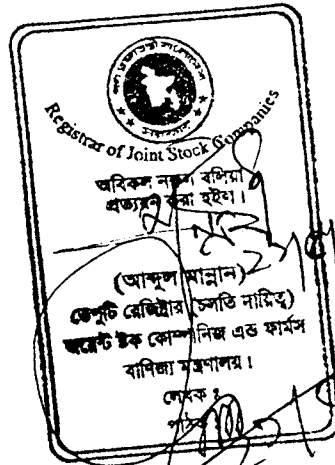 গণপ্রজাতন্ত্রী বাংলাদেশ
সরকার
Registrar of Joint Stock Companies
অবিকল নকল বলিয়া
প্রত্যয়ন করা হইল।
(আব্দুল মান্নান)
ডেপুটি রেজিষ্ট্রার (চলতি দায়িত্ব)
জয়েন্ট ষ্টক কোম্পানিজ এন্ড ফার্মস
বাণিজ্য মন্ত্রণালয়।
লেখক :